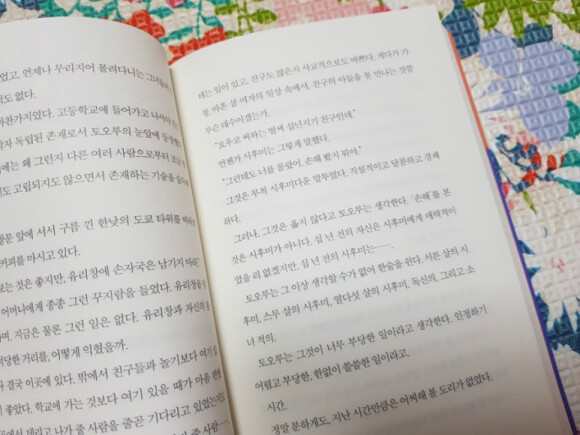 있었고, 언제나 무리지어 몰려다니는
적도 없다.
마찬가지였다. 고등학교에 들어가고 나서야
각자 독립된 존재로서 토오루의 눈앞에
에는 왜 그런지 다른 여러 사람으로부터
도 고립되지도 않으면서 존재하는 기술을
창문 앞에 서서 구름 낀 한낮의 도쿄 타워를
커피를 마시고 있다.
보는 것은 좋지만, 유리창에 손자국은 남기지 마라
어머니에게 종종 그런 꾸지람을 들었다. 유리창
며, 지금은 물론 그런 일은 없다. 유리창과 자신의
적당한 거리를, 어떻게 익혔을까.
결국 이곳에 있다. 밖에서 친구들과 놀기보다 여기
좋았다. 학교에 가는 것보다 여기 있을 때가 마음 편했
에서 데리고 나가 줄 사람을 줄곧 기다리고 있었는지도
테는 일이 있고, 친구도 많은지 사교적으로도 바쁘다. 게다가 가
정. 마흔 살 여자의 일상 속에서, 친구의 아들을 못 만나는 것쯤
무슨 대수이겠는가.
"요우코 씨와는 벌써 십년지기 친구인데."
언젠가 시후미는 그렇게 말했다.
"그런데도 너를 몰랐어, 손해 봤지 뭐야."
그것은 무척 시후미다운 말투였다. 직설적이고 달콤하고 경쾌
하다.
그러나, 그것은 옳지 않다고 토오루는 생각한다. '손해'를 본
것은 시후미가 아니다. 십 년 전의 자신은 시후미에게 매력적이
었을 리 없겠지만, 십 년 전의 시후미는…….
토오루는 그 이상 생각할 수가 없어 한숨을 쉰다. 서른 살의 시
후미, 스무 살의 시후미, 열다섯 살의 시후미, 독신의, 그리고 소
녀 적의.
토오루는 그것이 너무 부당한 일이라고 생각한다. 인정하기
어렵고 부당한, 한없이 쓸쓸한 일이라고.
시간.
정말 분하게도, 지난 시간만큼은 어찌해 볼 도리가 없었다.